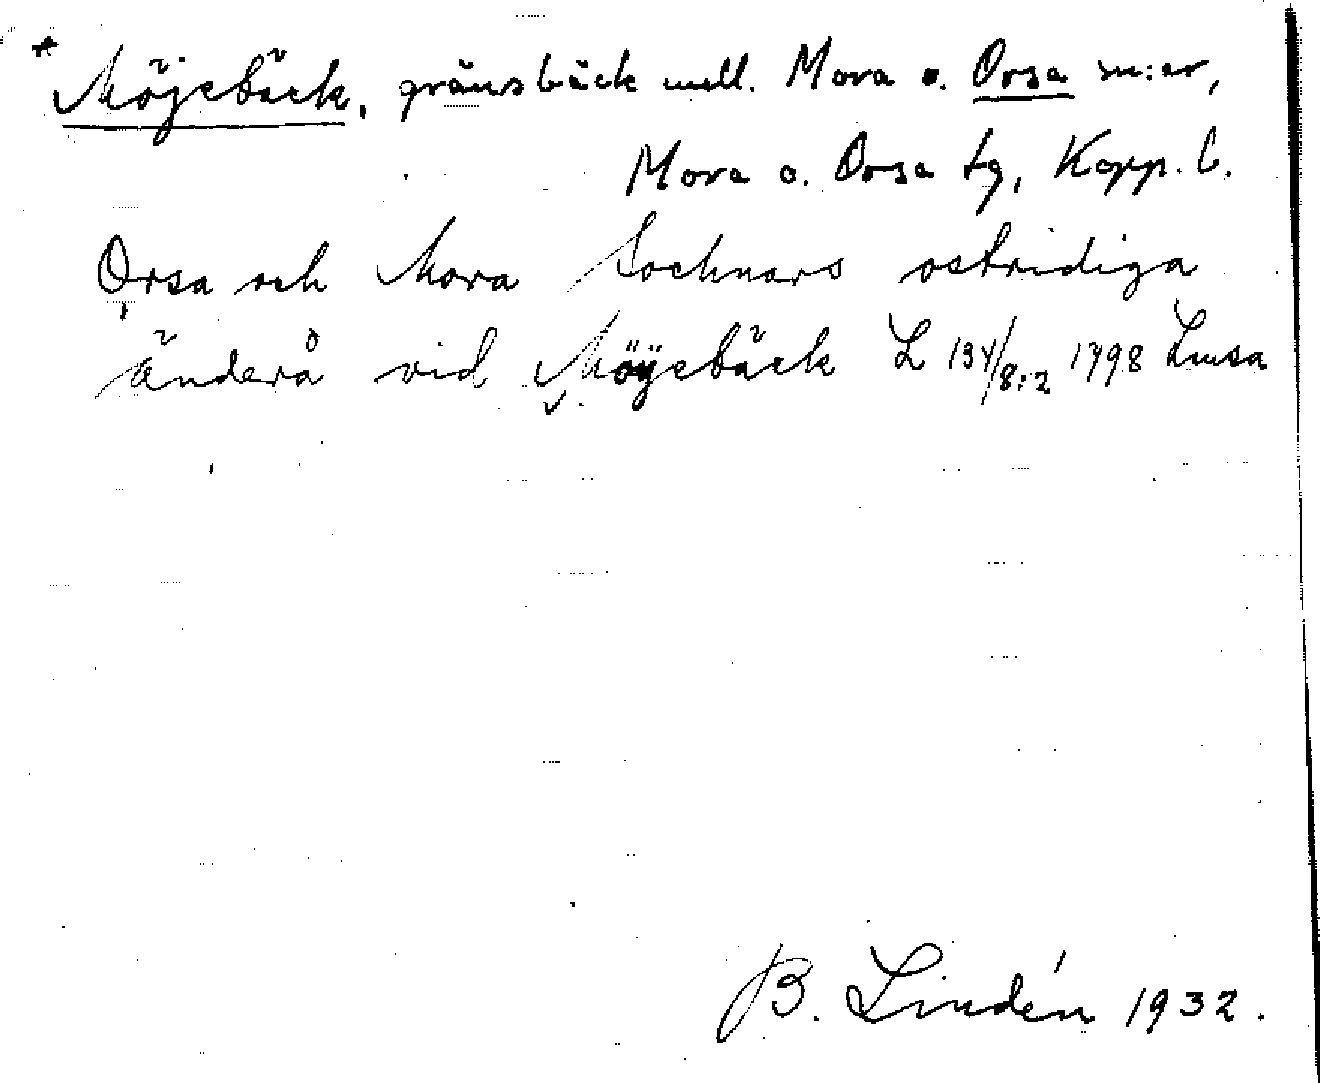 * Möjebäck, gränsbäck mell. Mora o. Orsa sn:ar,
Mora o. Orsa tg, Kopp. l.
Orsa och Mora Sochnars ostridiga
änderå vid Möÿebäck L 134/8:2 1798 Lmsa
B. Lindén 1932.